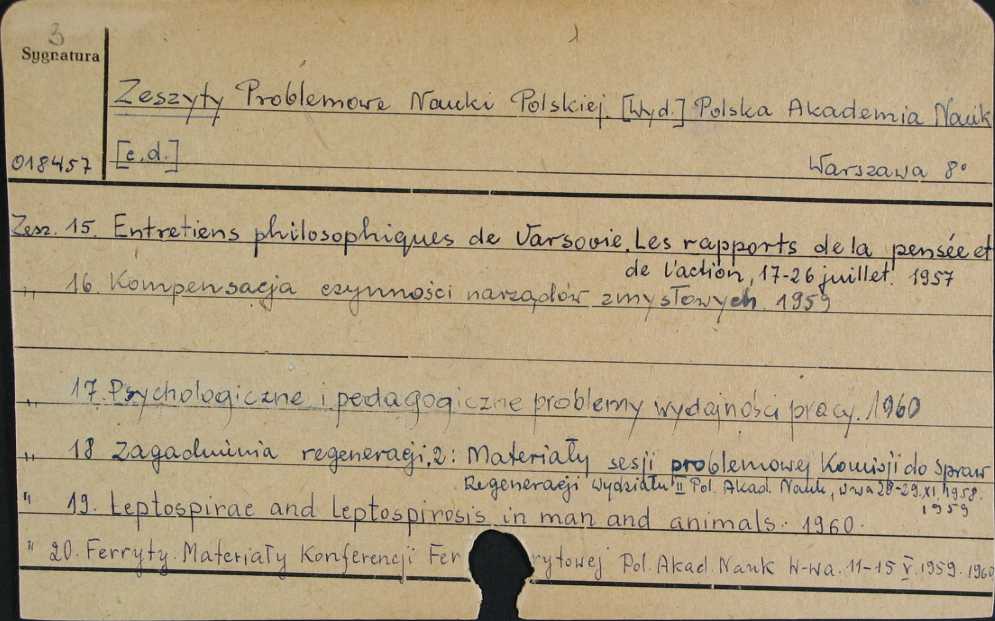 3
1
Sygnatura
Zeszyty Problemowe Nauki Polskiej. [Wyd.] Polska Akademia Nauk
018457 [e.d.] Warszawa 8°
Zesz. 15. Entretiens philosophiques de Varsovie. Les rapports de la pensée et
de l'action, 17-26 juillet 1957
" 16. Kompensacja czynności narządów zmysłowych. 1959
" 17. Psychologiczne i pedagogiczne problemy wydajności pracy. 1960
" 18 Zagadnienia regeneracji, 2: Materiały sesji problemowej Komisji do Spraw
Regeneracji Wydziału II Pol. Akad. Nauk, W-wa 28-29.XI.1958.
1959
" 19. Leptospirae and Leptospirosis in man and animals. 1960.
" 20. Ferryty. Materiały Konferencji Fer rytowej Pol. Akad. Nauk W-wa. 11-15 V. 1959. 1960